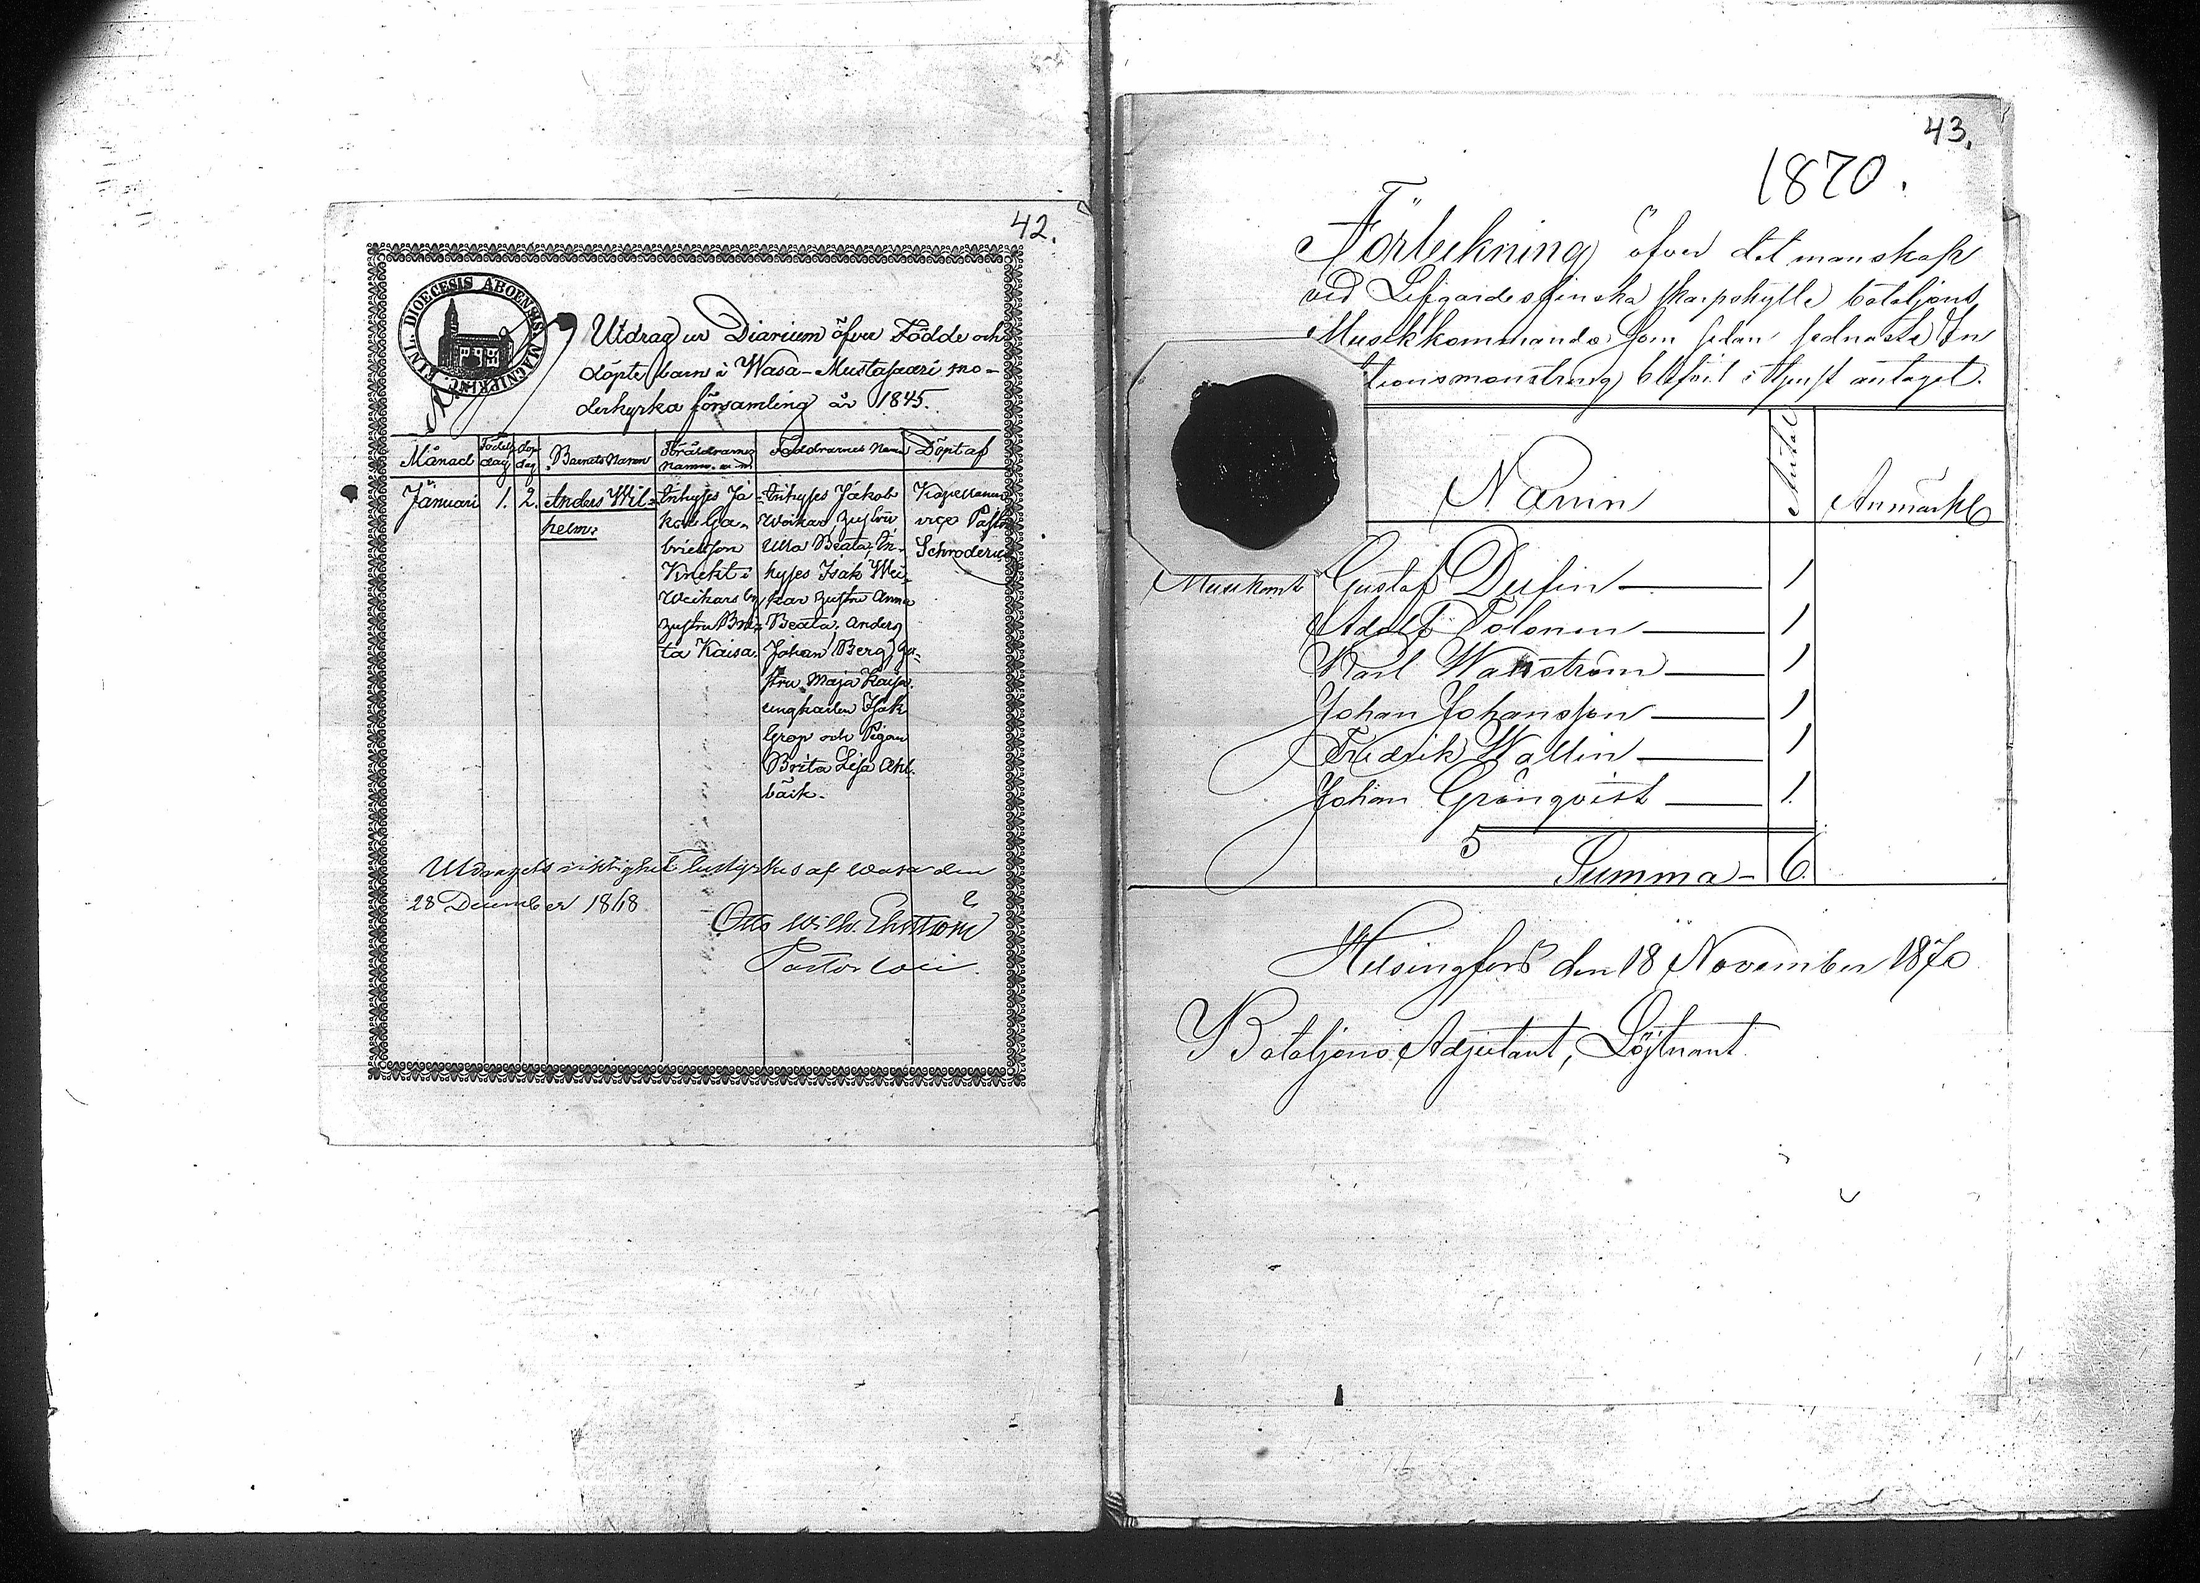 42.
FINL. DIOECESIS ABOENSIS MAGNI PRINC.
Utdrag ur Diarium öfver Födde och
döpte barn i Wasa-Mustasaari mo-
derkyrka församling år 1845.
Månad
Födels dag
dop dag
Barnets Namn
Föräldrarnes Namn
Faddrarnes Namn
Döpt af
Januari 1. 2.
Anders Wil-
helm.
Inhyses Ja-
kob Ga-
brielsson
Knekt i
Weikars by
hustru Bri-
ta Kaisa.
Inhyses Jakob
Weikar, hustru
Ulla Beata, In-
hyses Isak Wei-
kar hustru Anna
Beata. Anders
Johan Berg, hu-
stru Maja Kajsa.
ungkarlen Isak
Grop och Pigan
Brita Lisa Ahl-
bäck.
Kapellanen
vice Pastor
Schroderus
Utdragets riktighet bestyrkes af Wasa den
28 December 1868
Otto Wilh. Ehrström
Pastor loci.
43.
1870.
Förteckning öfver det manskap
ved Lifgardes finska skarpskytte bataljons
Musikkommando som sedan sednaste In
tionsmönstring blifvit i tjenst antaget.
Namn
Antal
Anmärkb
Musikant Gustaf Dufin 1
Adolf Polonen 1
Karl Wahlström 1
Johan Johansson 1
Fredrik Wallin 1
Johan Grönqvist 1.
5
Summa - 6.
Helsingfors den 18 November 1870
Bataljons Adjutant, Löjtnant.